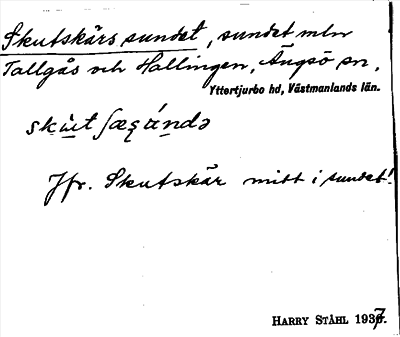 Skutskärssundet, sundet mln
Tallgås och Hallingen, Ängsö sn,
Yttertjurbo hd, Västmanlands län.
Jfr. Skutskär mitt i sundet!
HARRY STÅHL 1937.